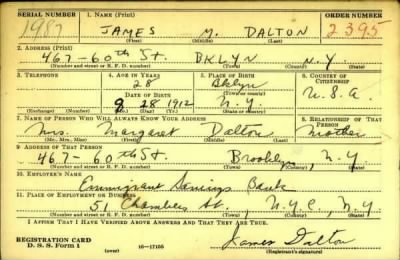 SERIAL NUMBER 1. NAME (Print) ORDER NUMBER
1987 JAMES M. DALTON 2395
(First) (Middle) (Last)
2. ADDRESS (Print)
467-60th St. BKLYN N.Y.
(Number and street or R. F. D. number) (Town) (County) (State)
3. TELEPHONE 4. AGE IN YEARS 5. PLACE OF BIRTH 6. COUNTRY OF CITIZENSHIP
28 Bklyn
DATE OF BIRTH (Town or county) U.S.A.
9 28 1912 N.Y.
(Exchange) (Number) (Mo.) (Day) (Yr.) (State or country)
7. NAME OF PERSON WHO WILL ALWAYS KNOW YOUR ADDRESS 8. RELATIONSHIP OF THAT PERSON
Mrs. Margaret Dalton Mother
(Mr., Mrs., Miss) (First) (Middle) (Last)
9. ADDRESS OF THAT PERSON
467-60th St. Brooklyn, N.Y.
(Number and street or R. F. D. number) (Town) (County) (State)
10. EMPLOYER'S NAME
Emmigrant Savings Bank
11. PLACE OF EMPLOYMENT OR BUSINESS
51 Chambers St. N.Y.C., N.Y.
(Number and street or R. F. D. number) (Town) (County) (State)
I AFFIRM THAT I HAVE VERIFIED ABOVE ANSWERS AND THAT THEY ARE TRUE.
REGISTRATION CARD
D. S. S. Form 1 16-17105 James Dalton
(over) (Registrant's signature)